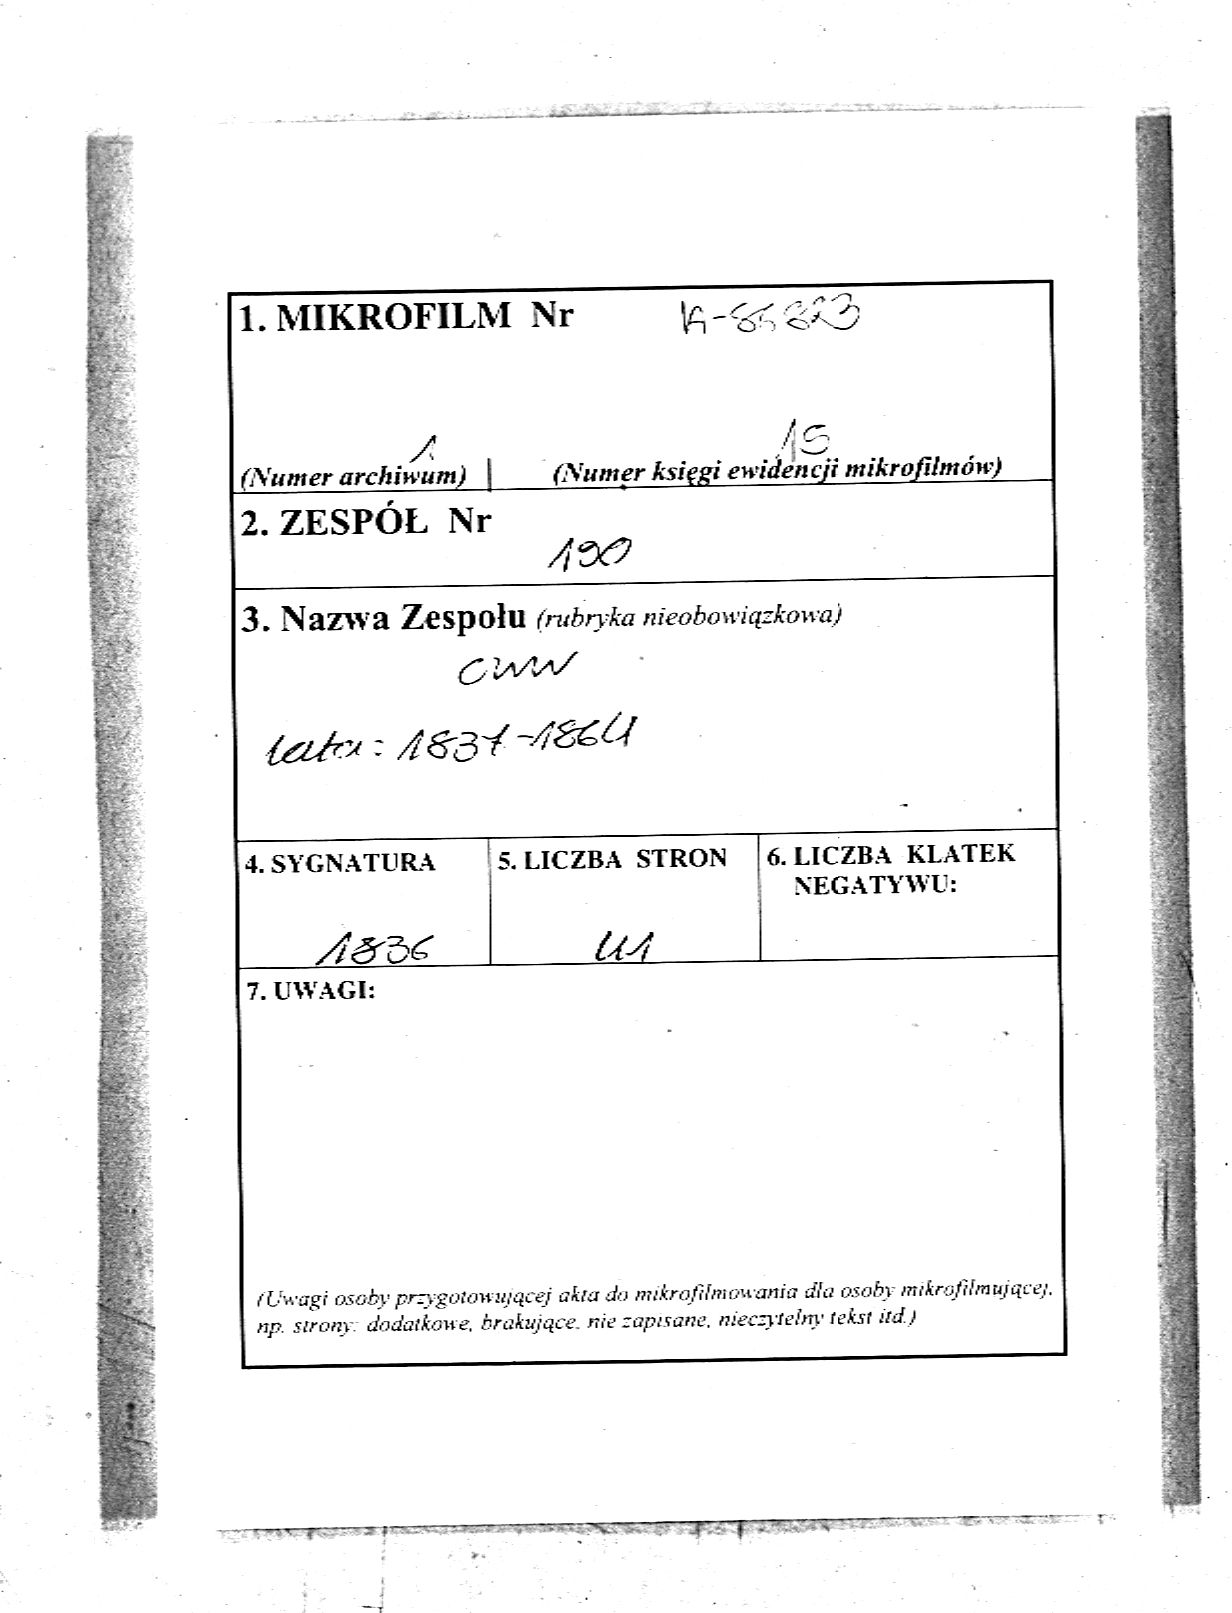 1. MIKROFILM Nr
1
15
(Numer archiwum) | (Numer księgi ewidencji mikrofilmów)
2. ZESPÓŁ Nr
190
3. Nazwa Zespołu (rubryka nieobowiązkowa)
CWW
lata: 1837-1864
4. SYGNATURA
5. LICZBA STRON
6. LICZBA KLATEK
NEGATYWU:
1836
41
7. UWAGI:
(Uwagi osoby przygotowującej akta do mikrofilmowania dla osoby mikrofilmującej,
np. strony: dodatkowe, brakujące, nie zapisane, nieczytelny tekst itd.)